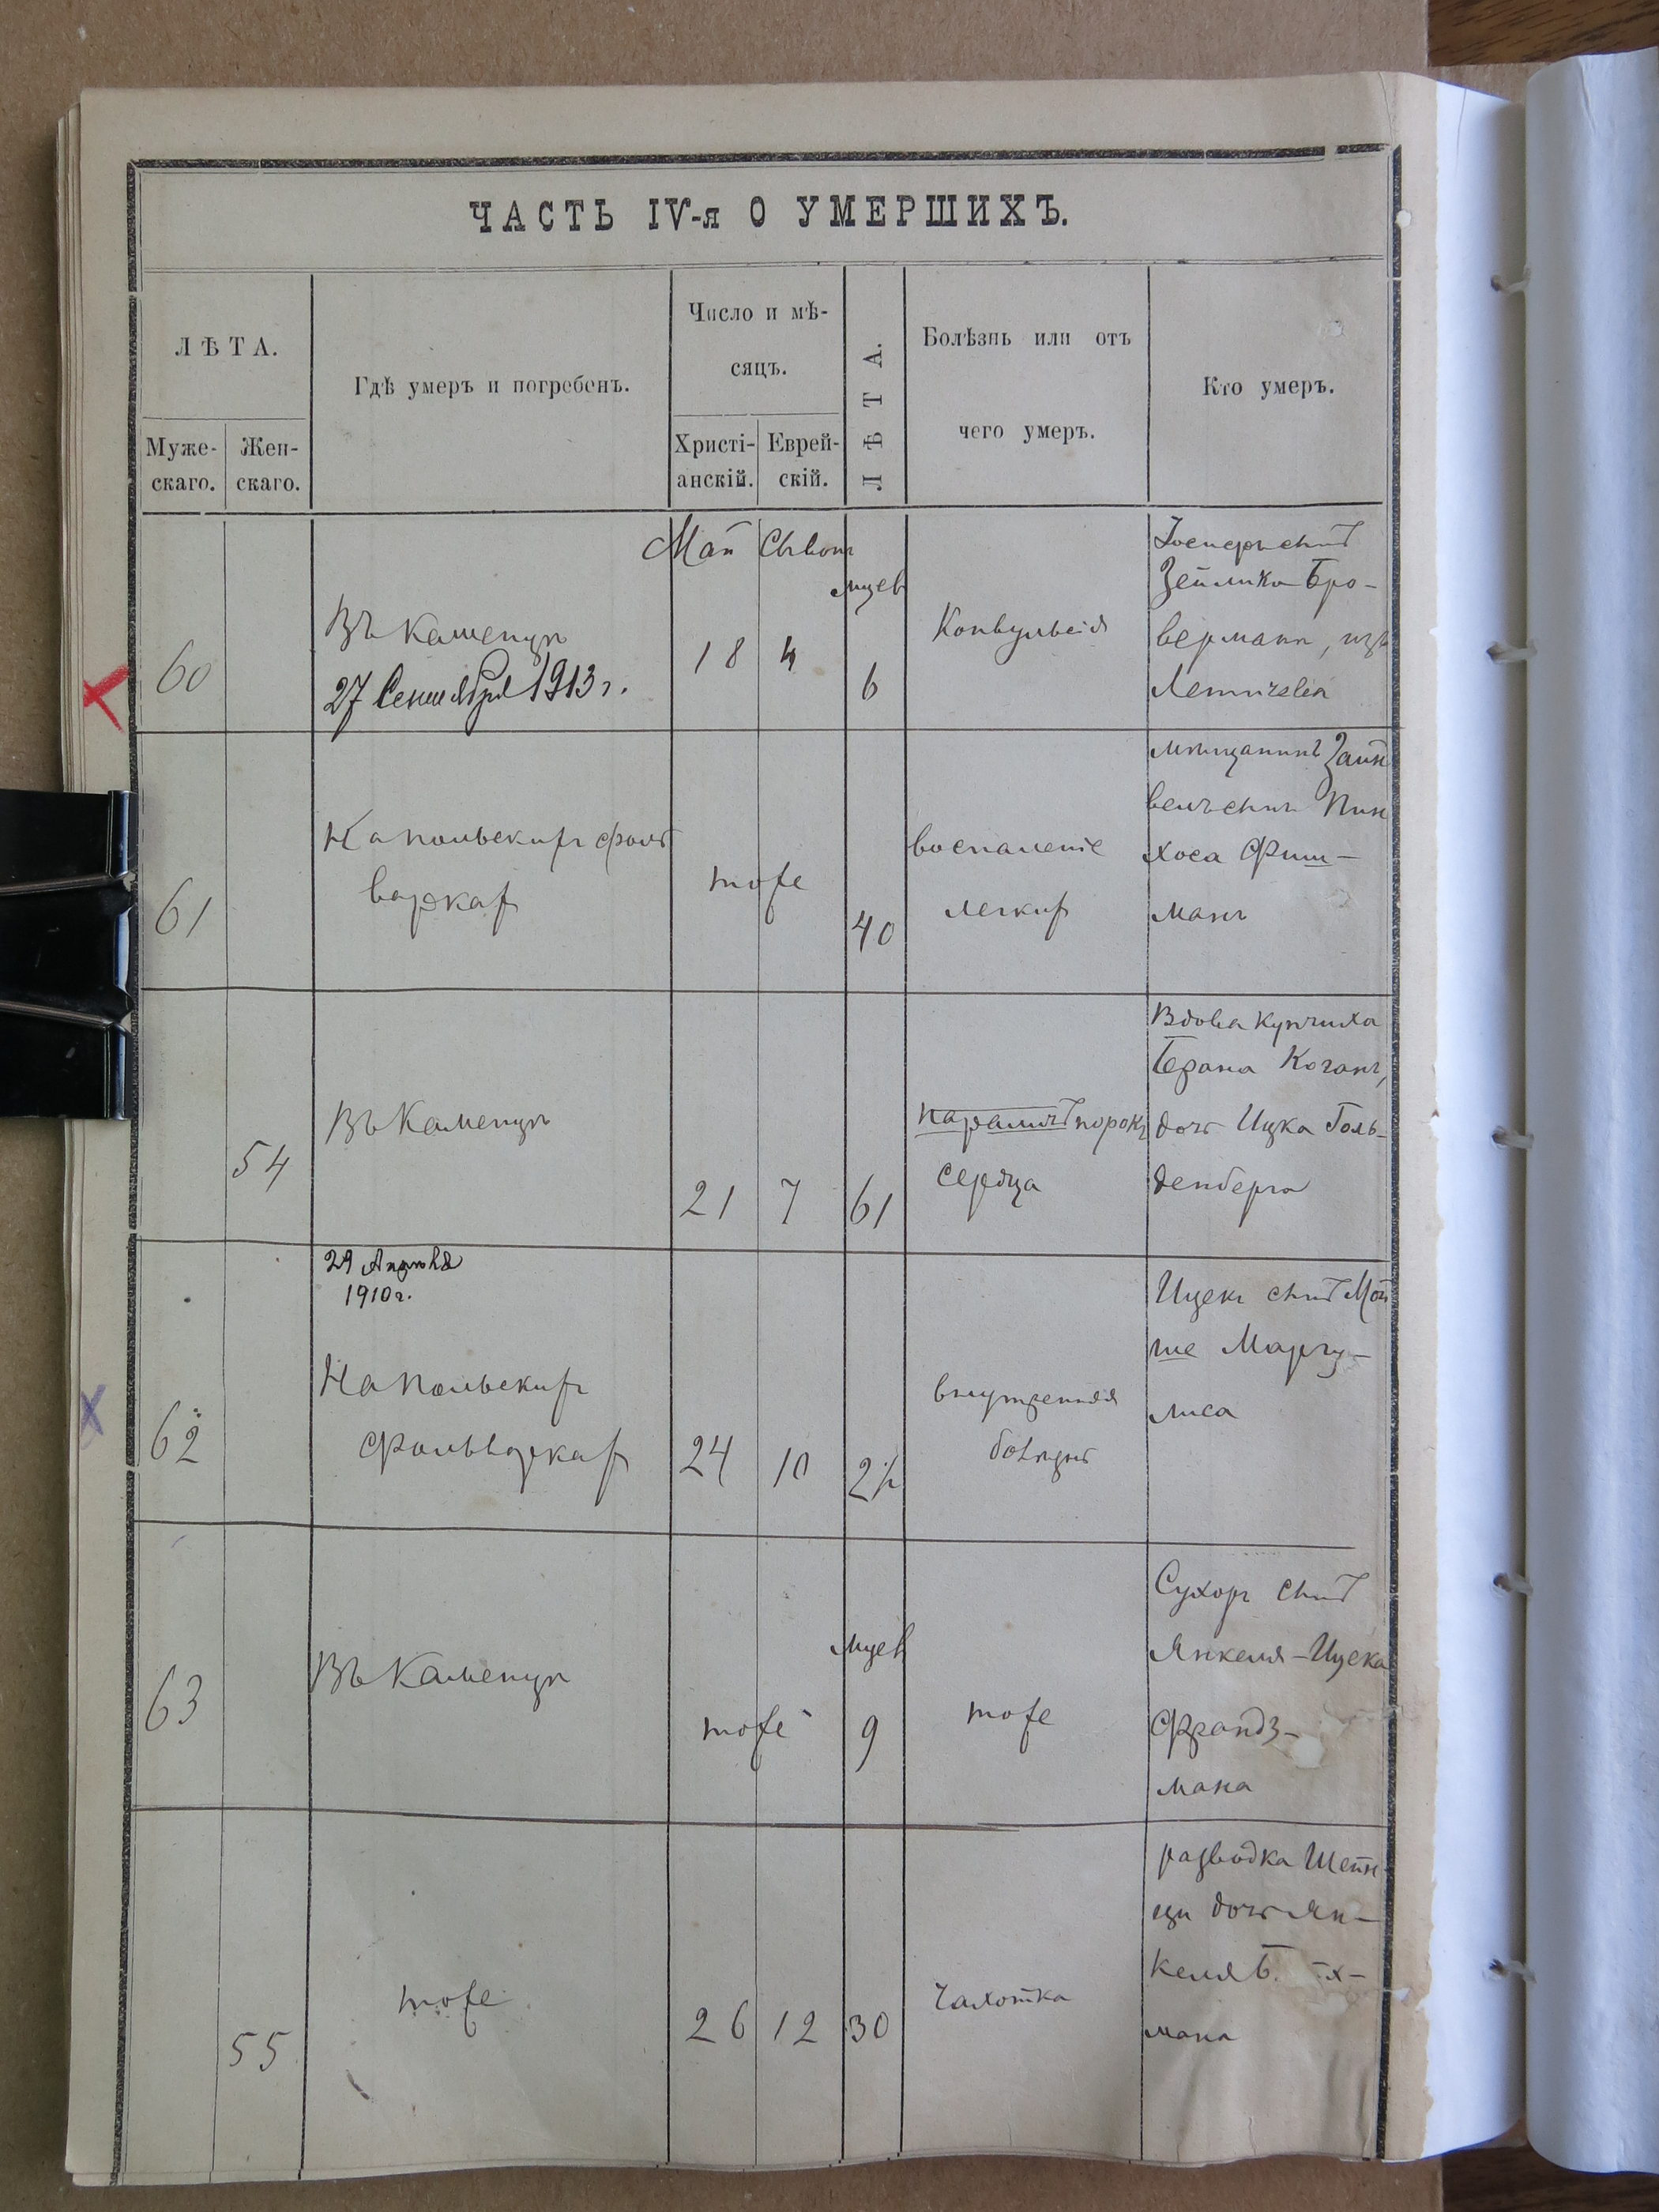 ЧАСТЬ IV-я О УМЕРШИХЪ.
ЛѢТА.
Муже-
скаго.
Жен-
скаго.
Гдѣ умеръ и погребенъ.
Число и мѣ-
сяцъ.
Христі-
анскій.
Еврей-
скій.
ЛѢТА.
Болѣзнь или отъ
чего умеръ.
Кто умеръ.
Май
60
Въ Каменцѣ
27 Сентября 1913 г.
18
4
мцев
6
Конвульсія
сынъ
Зейлика Бро-
вермана, изъ
Летичева
61
На польскихъ фоль
варкахъ
тоже
40
воспаленіе
легких
мѣщанинъ Заин
велъ сынъ Пин
хоса Фиш-
манъ
54
Въ Каменцѣ
21
7
61
параличъ порокъ
сердца
Вдова купчиха
Брана Коганъ,
дочь Ицка Голь-
денберга
62
29 Апрѣля
1910 г.
На польскихъ
фольваркахъ
24
10
внутренняя
болѣзнь
Ицекъ сынъ Мой
ше Маргу-
лиса
63
Въ Каменцѣ
тоже
мцев
9
тоже
Сухоръ сынъ
Янкеля-Ицека
Франдз-
мана
55
тоже
26
12
30
Чахотка
разводка Шейн
ци дочь Ян-
келя
мана